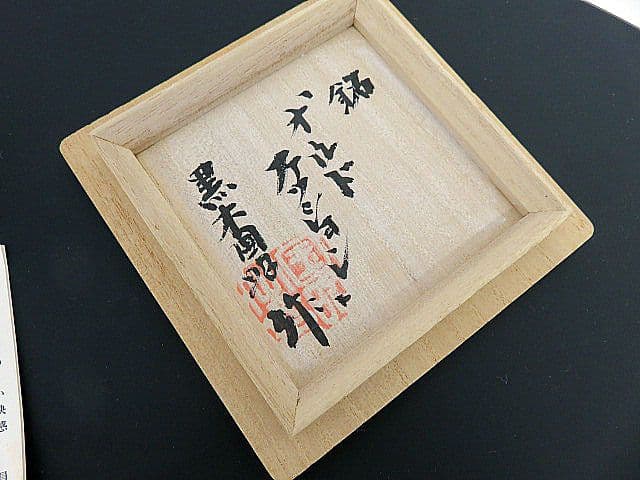 銘
オールド
ファッション
黒木国昭
作